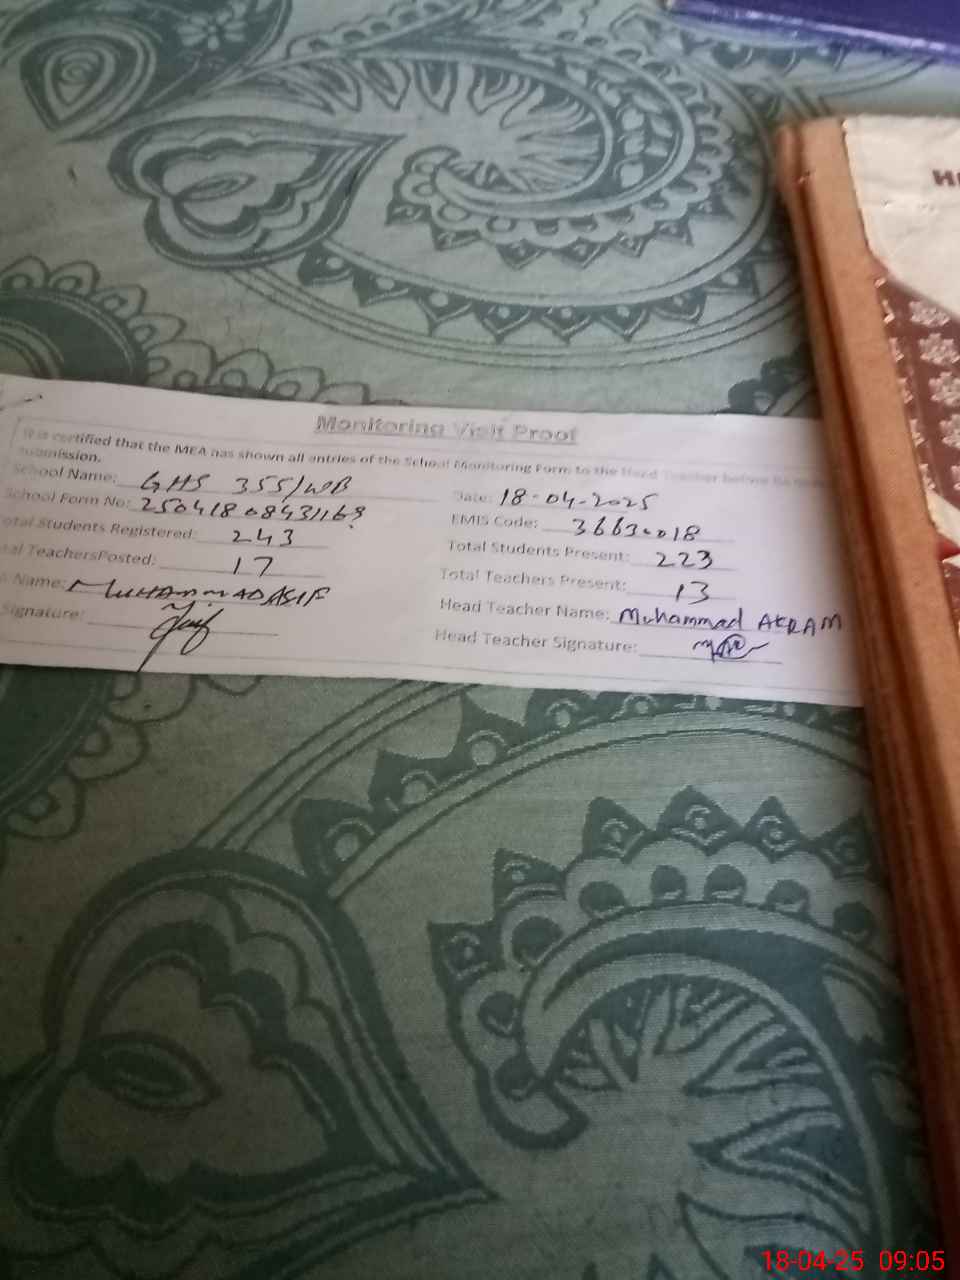 Monitoring Visit Proof
It is certified that the MEA has shown all entries of the School Monitoring Form to the Head Teacher before
submission.
School Name: GHS 355/WB
Date: 18-04-2025
School Form No: 25041808431169
EMIS Code: 36630018
otal Students Registered: 243
Total Students Present: 223
tal TeachersPosted: 17
Total Teachers Present: 13
Name: MUHAMMAD ASIF
Head Teacher Name: Muhammad AKRAM
Signature:
Head Teacher Signature:
18-04-25 09:05